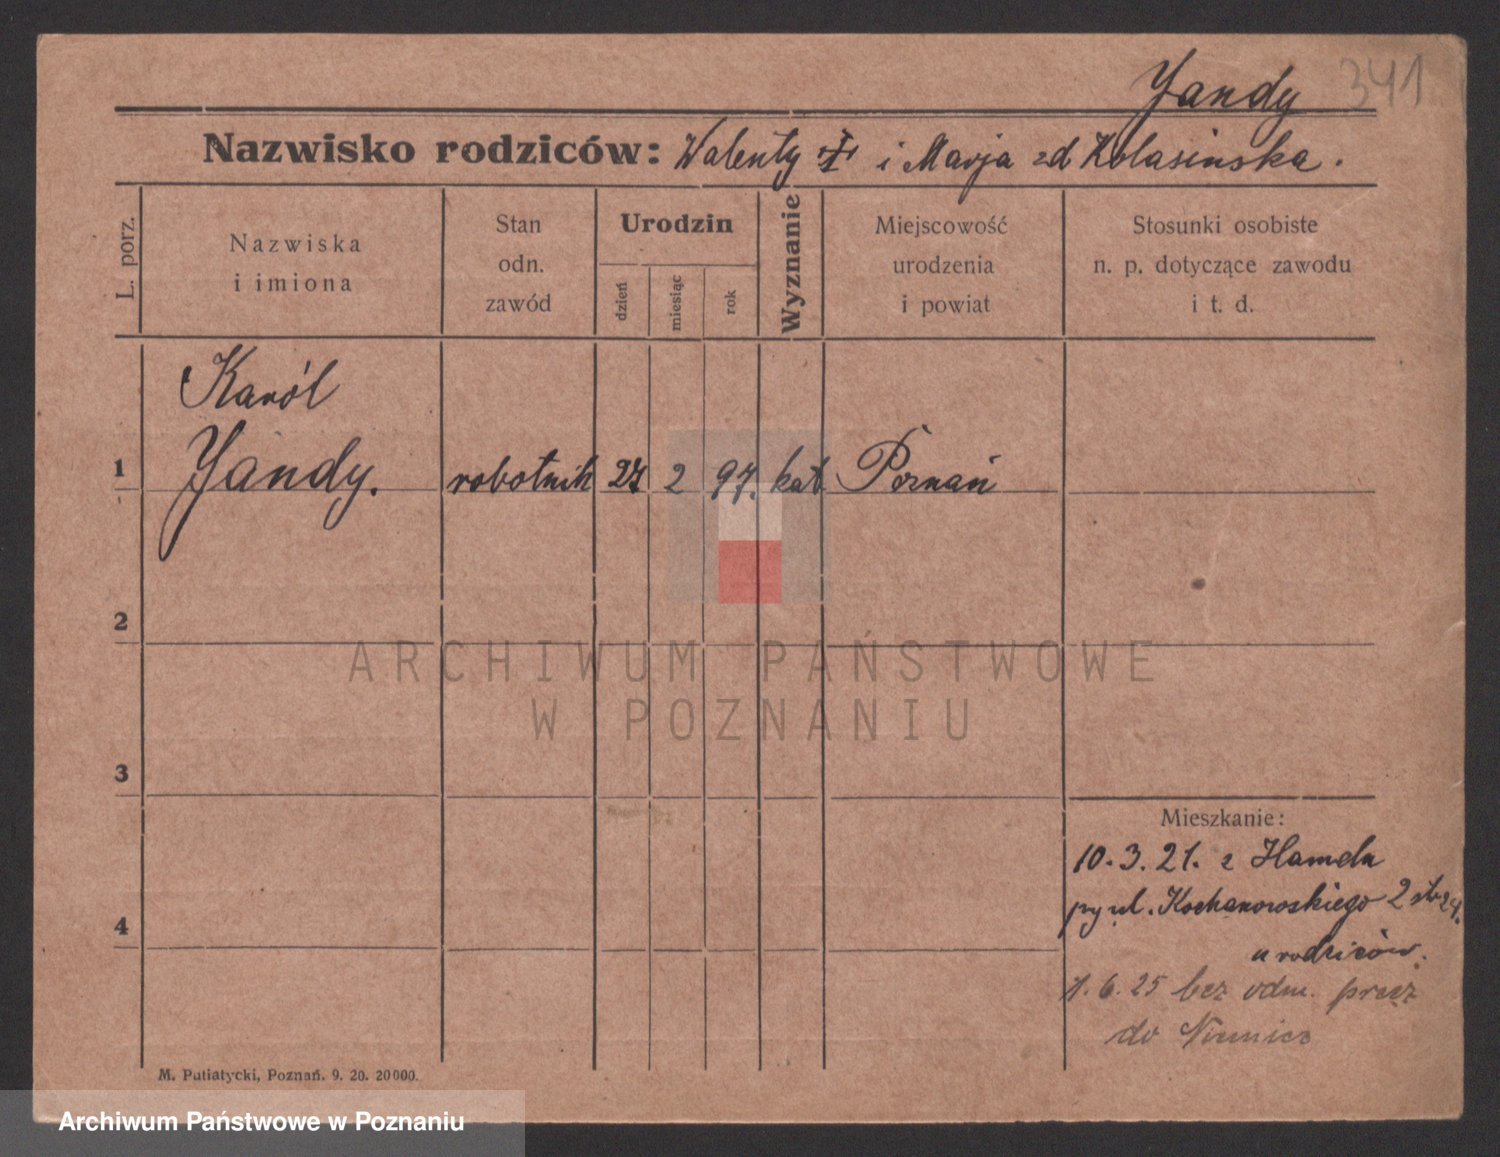 Yandy 341
Nazwisko rodziców: Walenty i Marja zd Kolasińska.
L. porz.
Nazwiska
i imiona
Stan
odn.
zawód
Urodzin
dzień
miesiąc
rok
Wyznanie
Miejscowość
urodzenia
i powiat
Stosunki osobiste
n. p. dotyczące zawodu
i t. d.
Karól
1 Yandy. robotnik 27 2 97. kat Poznań
2
ARCHIWUM PAŃSTWOWE
W POZNANIU
3
Mieszkanie:
10.3.21. z Hameln
py ul. Kochanowskiego 2
4
u rodziców.
1.6.25 bez odm. precz
do Niemiec
M. Putiatycki, Poznań. 9. 20. 20000.
Archiwum Państwowe w Poznaniu